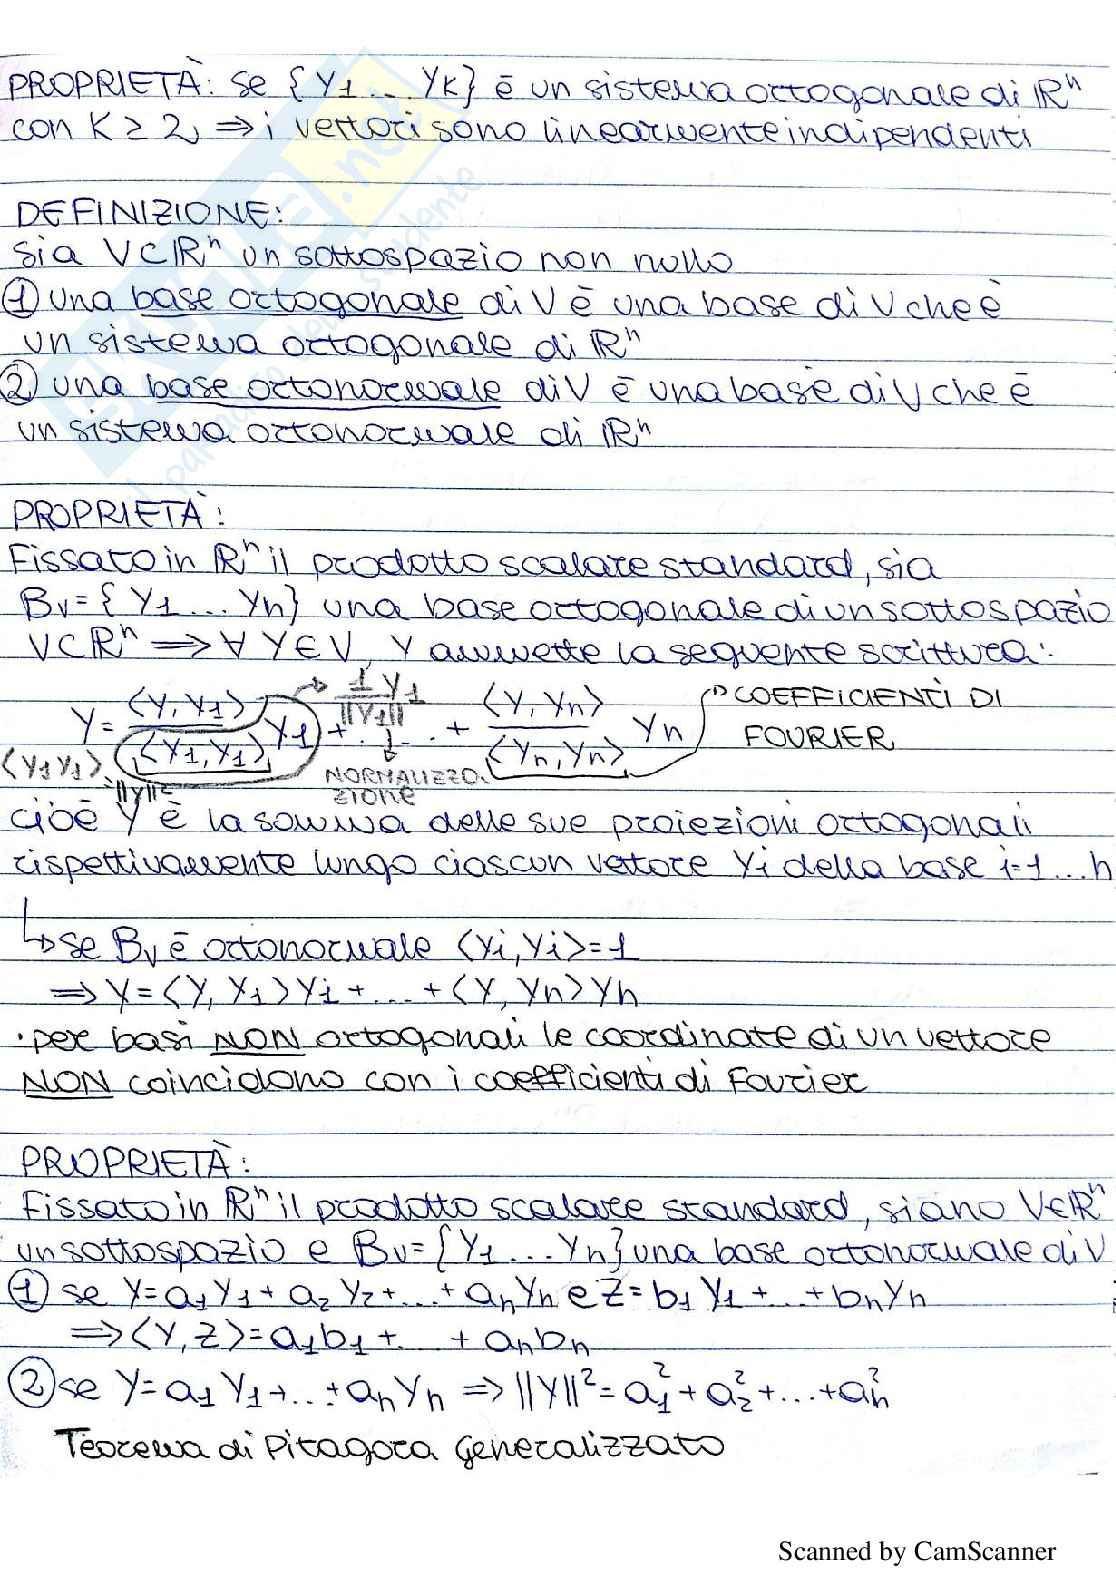 PROPRIETÀ: se {Y1 ... YK} è un sistema ortogonale di ℝⁿ
con K ≥ 2, ⇒ i vettori sono linearmente indipendenti
DEFINIZIONE:
Sia V⊂ℝⁿ un sottospazio non nullo
① una base ortogonale di V è una base di V che è
un sistema ortogonale di ℝⁿ
② una base ortonormale di V è una base di V che è
un sistema ortonormale di ℝⁿ
PROPRIETÀ:
Fissato in ℝⁿ il prodotto scalare standard, sia
Bv={Y1 ... Yn} una base ortogonale di un sottospazio
V⊂ℝⁿ ⇒ ∀ Y∈V, Y ammette la seguente scrittura:
Y= <Y, Y1>/<Y1, Y1> Y1 + ... + <Y, Yn>/<Yn, Yn> Yn
1/||Y1|| Y1
COEFFICIENTI DI
FOURIER
<Y1 Y1>
||Y||²
NORMALIZZO.
ZIONE
cioè Y è la somma delle sue proiezioni ortogonali
rispettivamente lungo ciascun vettore Yi della base i=1...n
↳ se Bv è ortonormale <Yi, Yi>=1
⇒ Y=<Y, Y1>Y1+...+<Y, Yn>Yn
·per basi NON ortogonali le coordinate di un vettore
NON coincidono con i coefficienti di Fourier
PROPRIETÀ:
Fissato in ℝⁿ il prodotto scalare standard, siano V∈ℝⁿ
un sottospazio e Bv={Y1 ... Yn} una base ortonormale di V
① se Y=a1Y1+a2Y2+...+anYn e Z=b1Y1+...+bnYn
⇒<Y,Z>=a1b1+...+anbn
② se Y=a1Y1+...+anYn ⇒ ||Y||²=a1²+a2²+...+an²
Teorema di Pitagora Generalizzato
Scanned by CamScanner